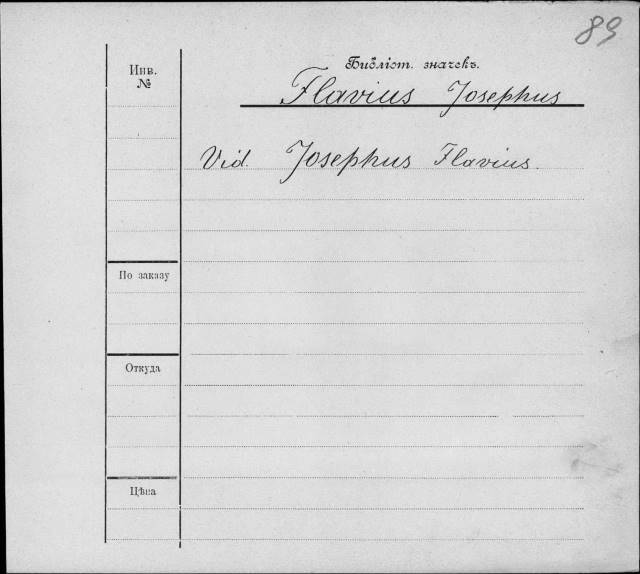 89
Библіот. значекъ.
Инв.
№
Flavius Josephus
Vid. Josephus Flavius.
По заказу
Откуда
Цѣна